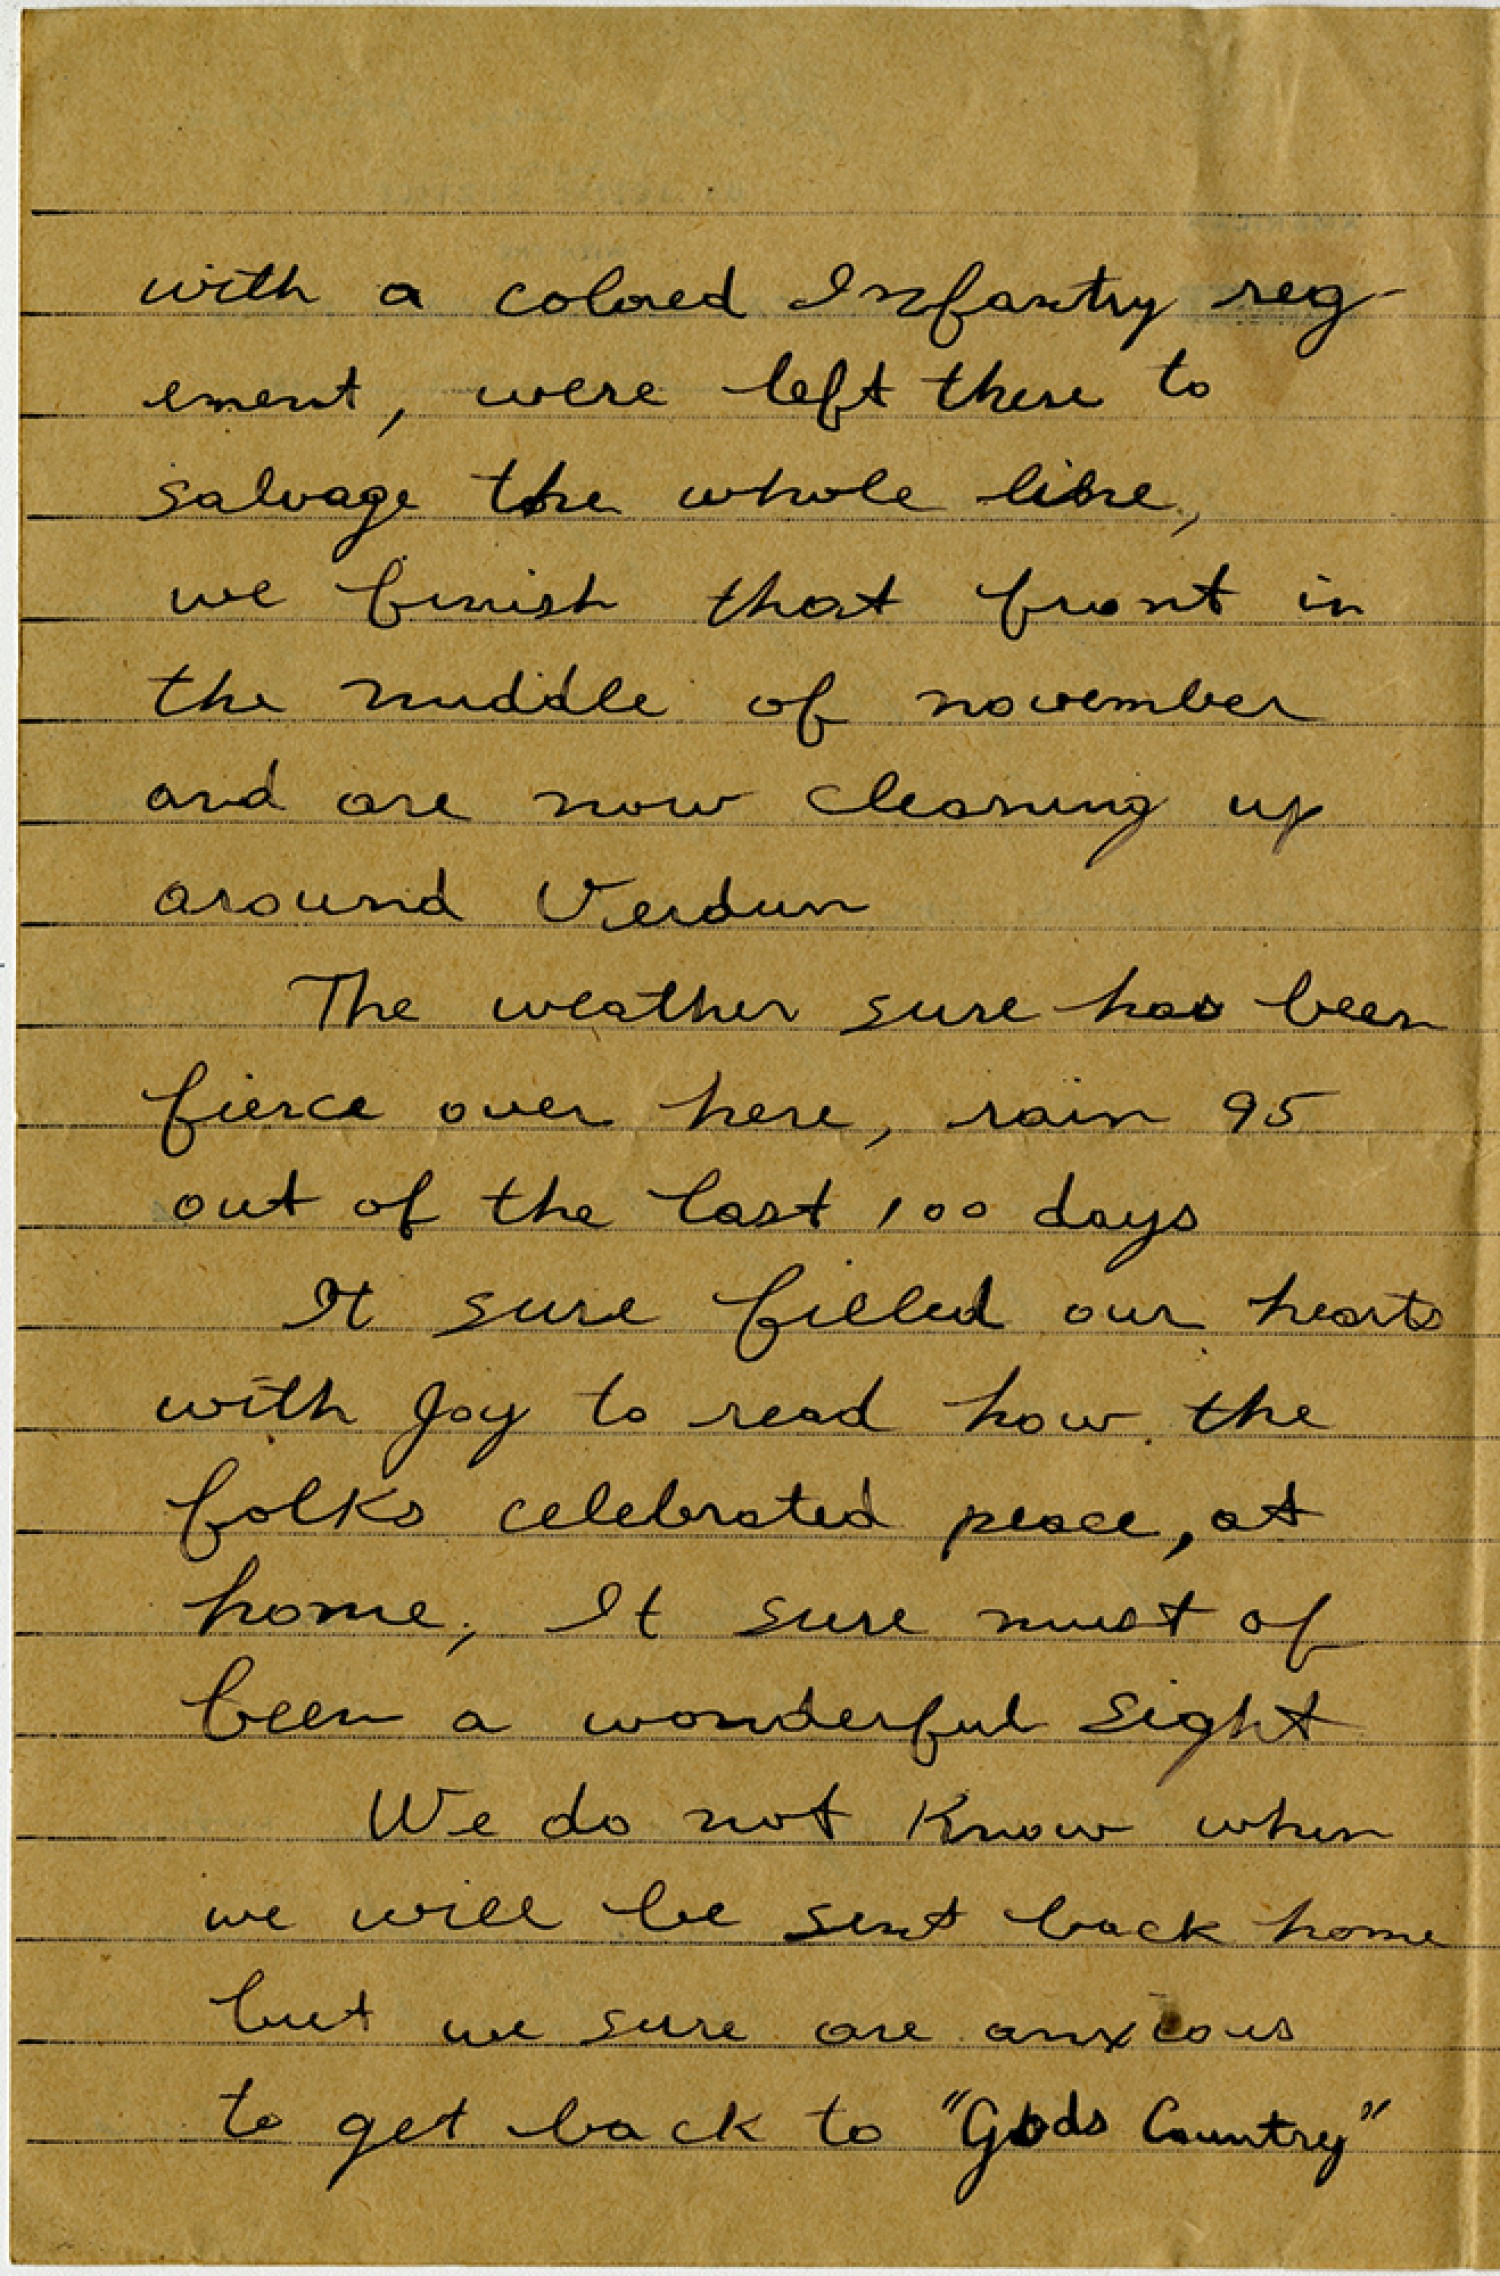 with a colored Infantry reg-
ement, were left there to
salvage the whole line,
we finish that front in
the middle of november
and are now cleaning up
around Verdun
The weather sure has been
fierce over here, rain 95
out of the last 100 days
It sure filled our hearts
with Joy to read how the
folks celebrated peace, at
home, It sure must of
been a wonderful sight
We do not Know when
we will be sent back home
but we sure are anxious
to get back to "Gods Country"